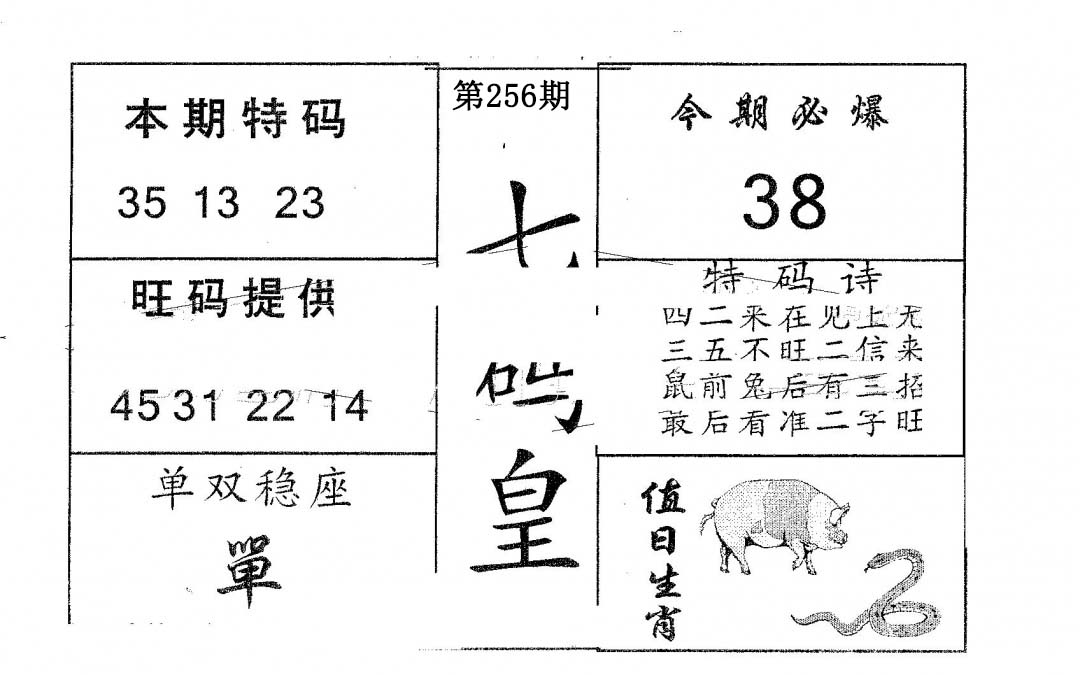 本期特码
35 13 23
旺码提供
45 31 22 14
单双稳座
單
第256期
七
皇
今期必爆
38
特码诗
四二来在见上无
三五不旺二信来
鼠前兔后有三招
敢后看准二字旺
值日生肖